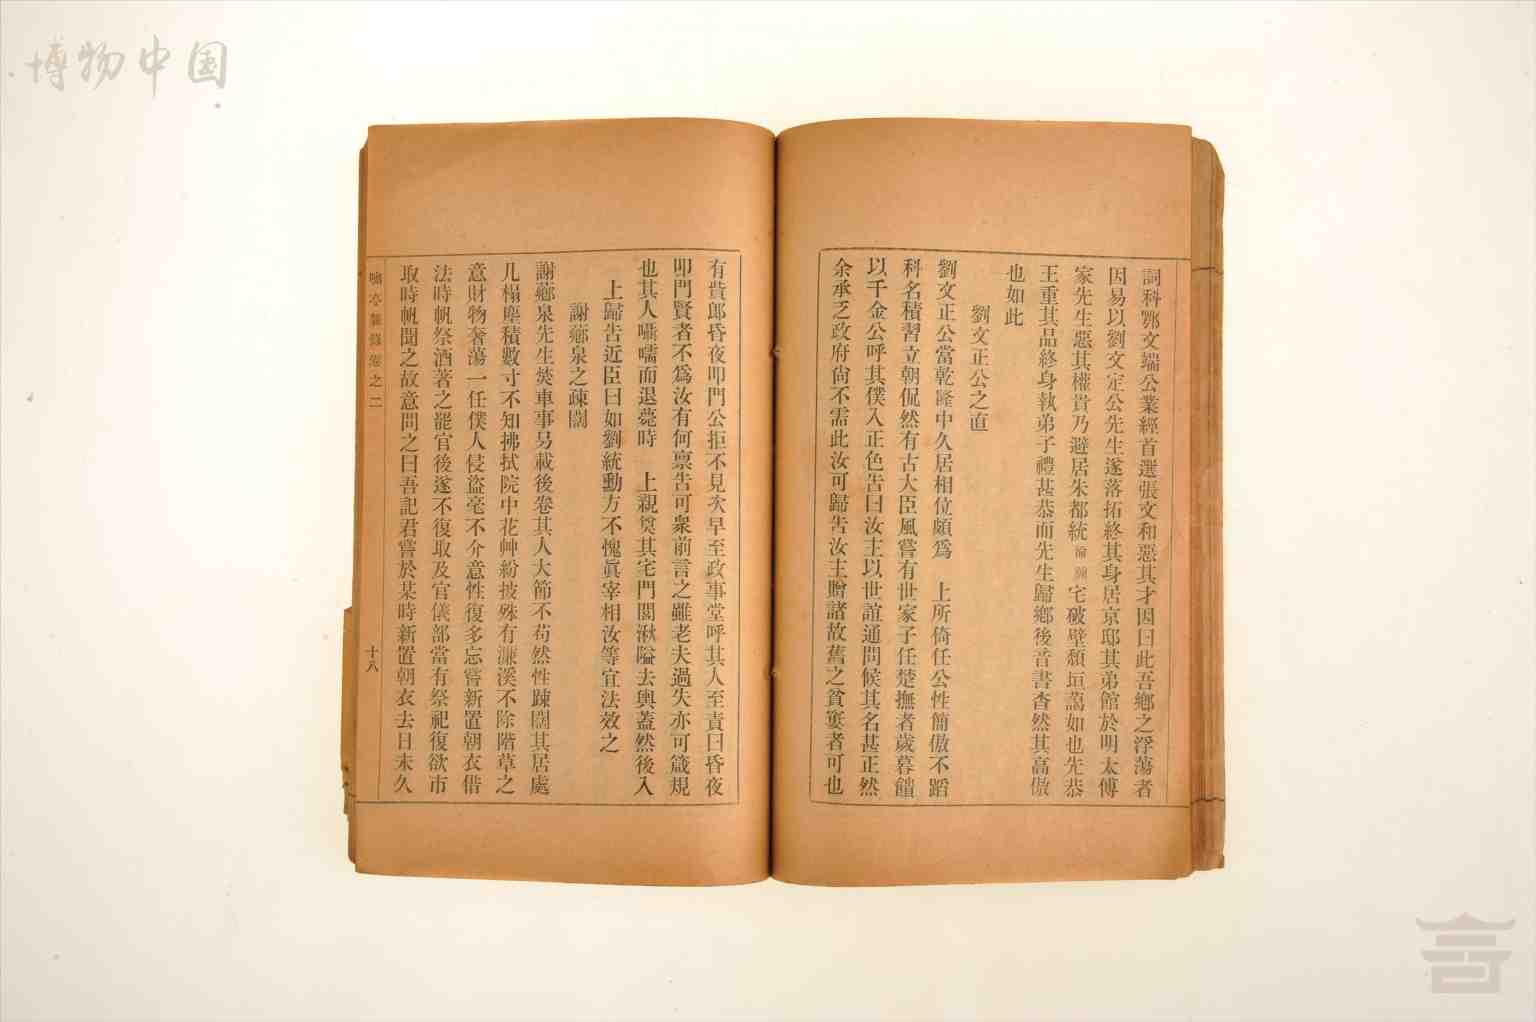 博物中国
詞科鄂文端公業經首選張文和惡其才因曰此吾鄉之浮蕩者
因易以劉文定公先生遂落拓終其身居京邸其弟館於明太傅
家先生惡其權貴乃避居朱都統 宅破壁頹垣藹如也先恭
王重其品終身執弟子禮甚恭而先生歸鄉後音書杳然其高傲
也如此
劉文正公之直
劉文正公當乾隆中久居相位頗爲 上所倚任公性簡傲不蹈
科名積習立朝侃然有古大臣風嘗有世家子任楚撫者歲暮饋
以千金公呼其僕入正色告曰汝主以世誼通問候其名甚正然
余承乏政府尙不需此汝可歸告汝主贈諸故舊之貧窶者可也
有貴郎昏夜叩門公拒不見次早至政事堂呼其人至責曰昏夜
叩門賢者不爲汝有何禀告可衆前言之雖老夫過失亦可箴規
也其人囁嚅而退薨時 上親奠其宅門閭湫隘去輿蓋然後入
上歸告近臣曰如劉統勳方不愧眞宰相汝等宜法效之
謝薌泉之疎闊
謝薌泉先生焚車事另載後卷其人大節不苟然性踈闊其居處
几榻塵積數寸不知拂拭院中花艸紛披殊有濂溪不除階草之
意財物奢蕩一任僕人侵盜毫不介意性復多忘嘗新置朝衣借
法時帆祭酒著之罷官後遂不復取及官儀部當有祭祀復欲市
取時帆聞之故意問之曰吾記君嘗於某時新置朝衣去日未久
嘯亭雜錄卷之二
十八